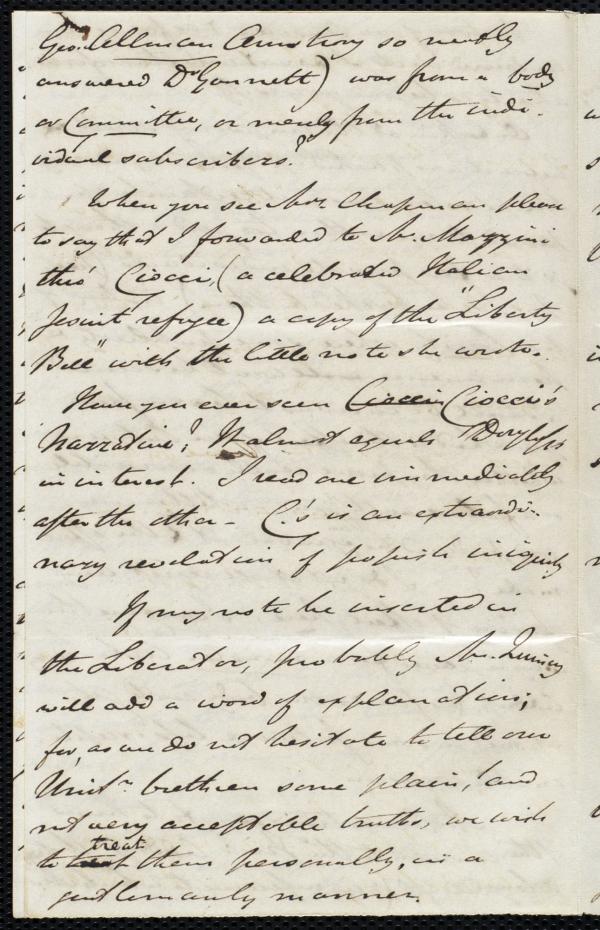 Geo. Allman Armstrong so neatly
answered Dr Gannett) was from a body
or Committee, or merely from the indi-
vidual subscribers?
When you see Mrs Chapman please
to say that I forwarded to M. Mazzini
thro' Ciocci, (a celebrated Italian
Jesuit refugee) a copy of the "Liberty
Bell" with the little note she wrote.
Have you ever seen Ciocci Ciocci's
Narrative? It almost equals Douglass
in interest. I read one immediately
after the other - C.'s is an extraordi-
nary revelation of popish iniquity
If my note be inserted in
the Liberator, probably Mr. Quincy
will add a word of explanation;
for, as we do not hesitate to tell our
Unitn. brethren some plain, and
not very acceptable truths, we wish
to treat them personally, in a
gentlemanly manner.